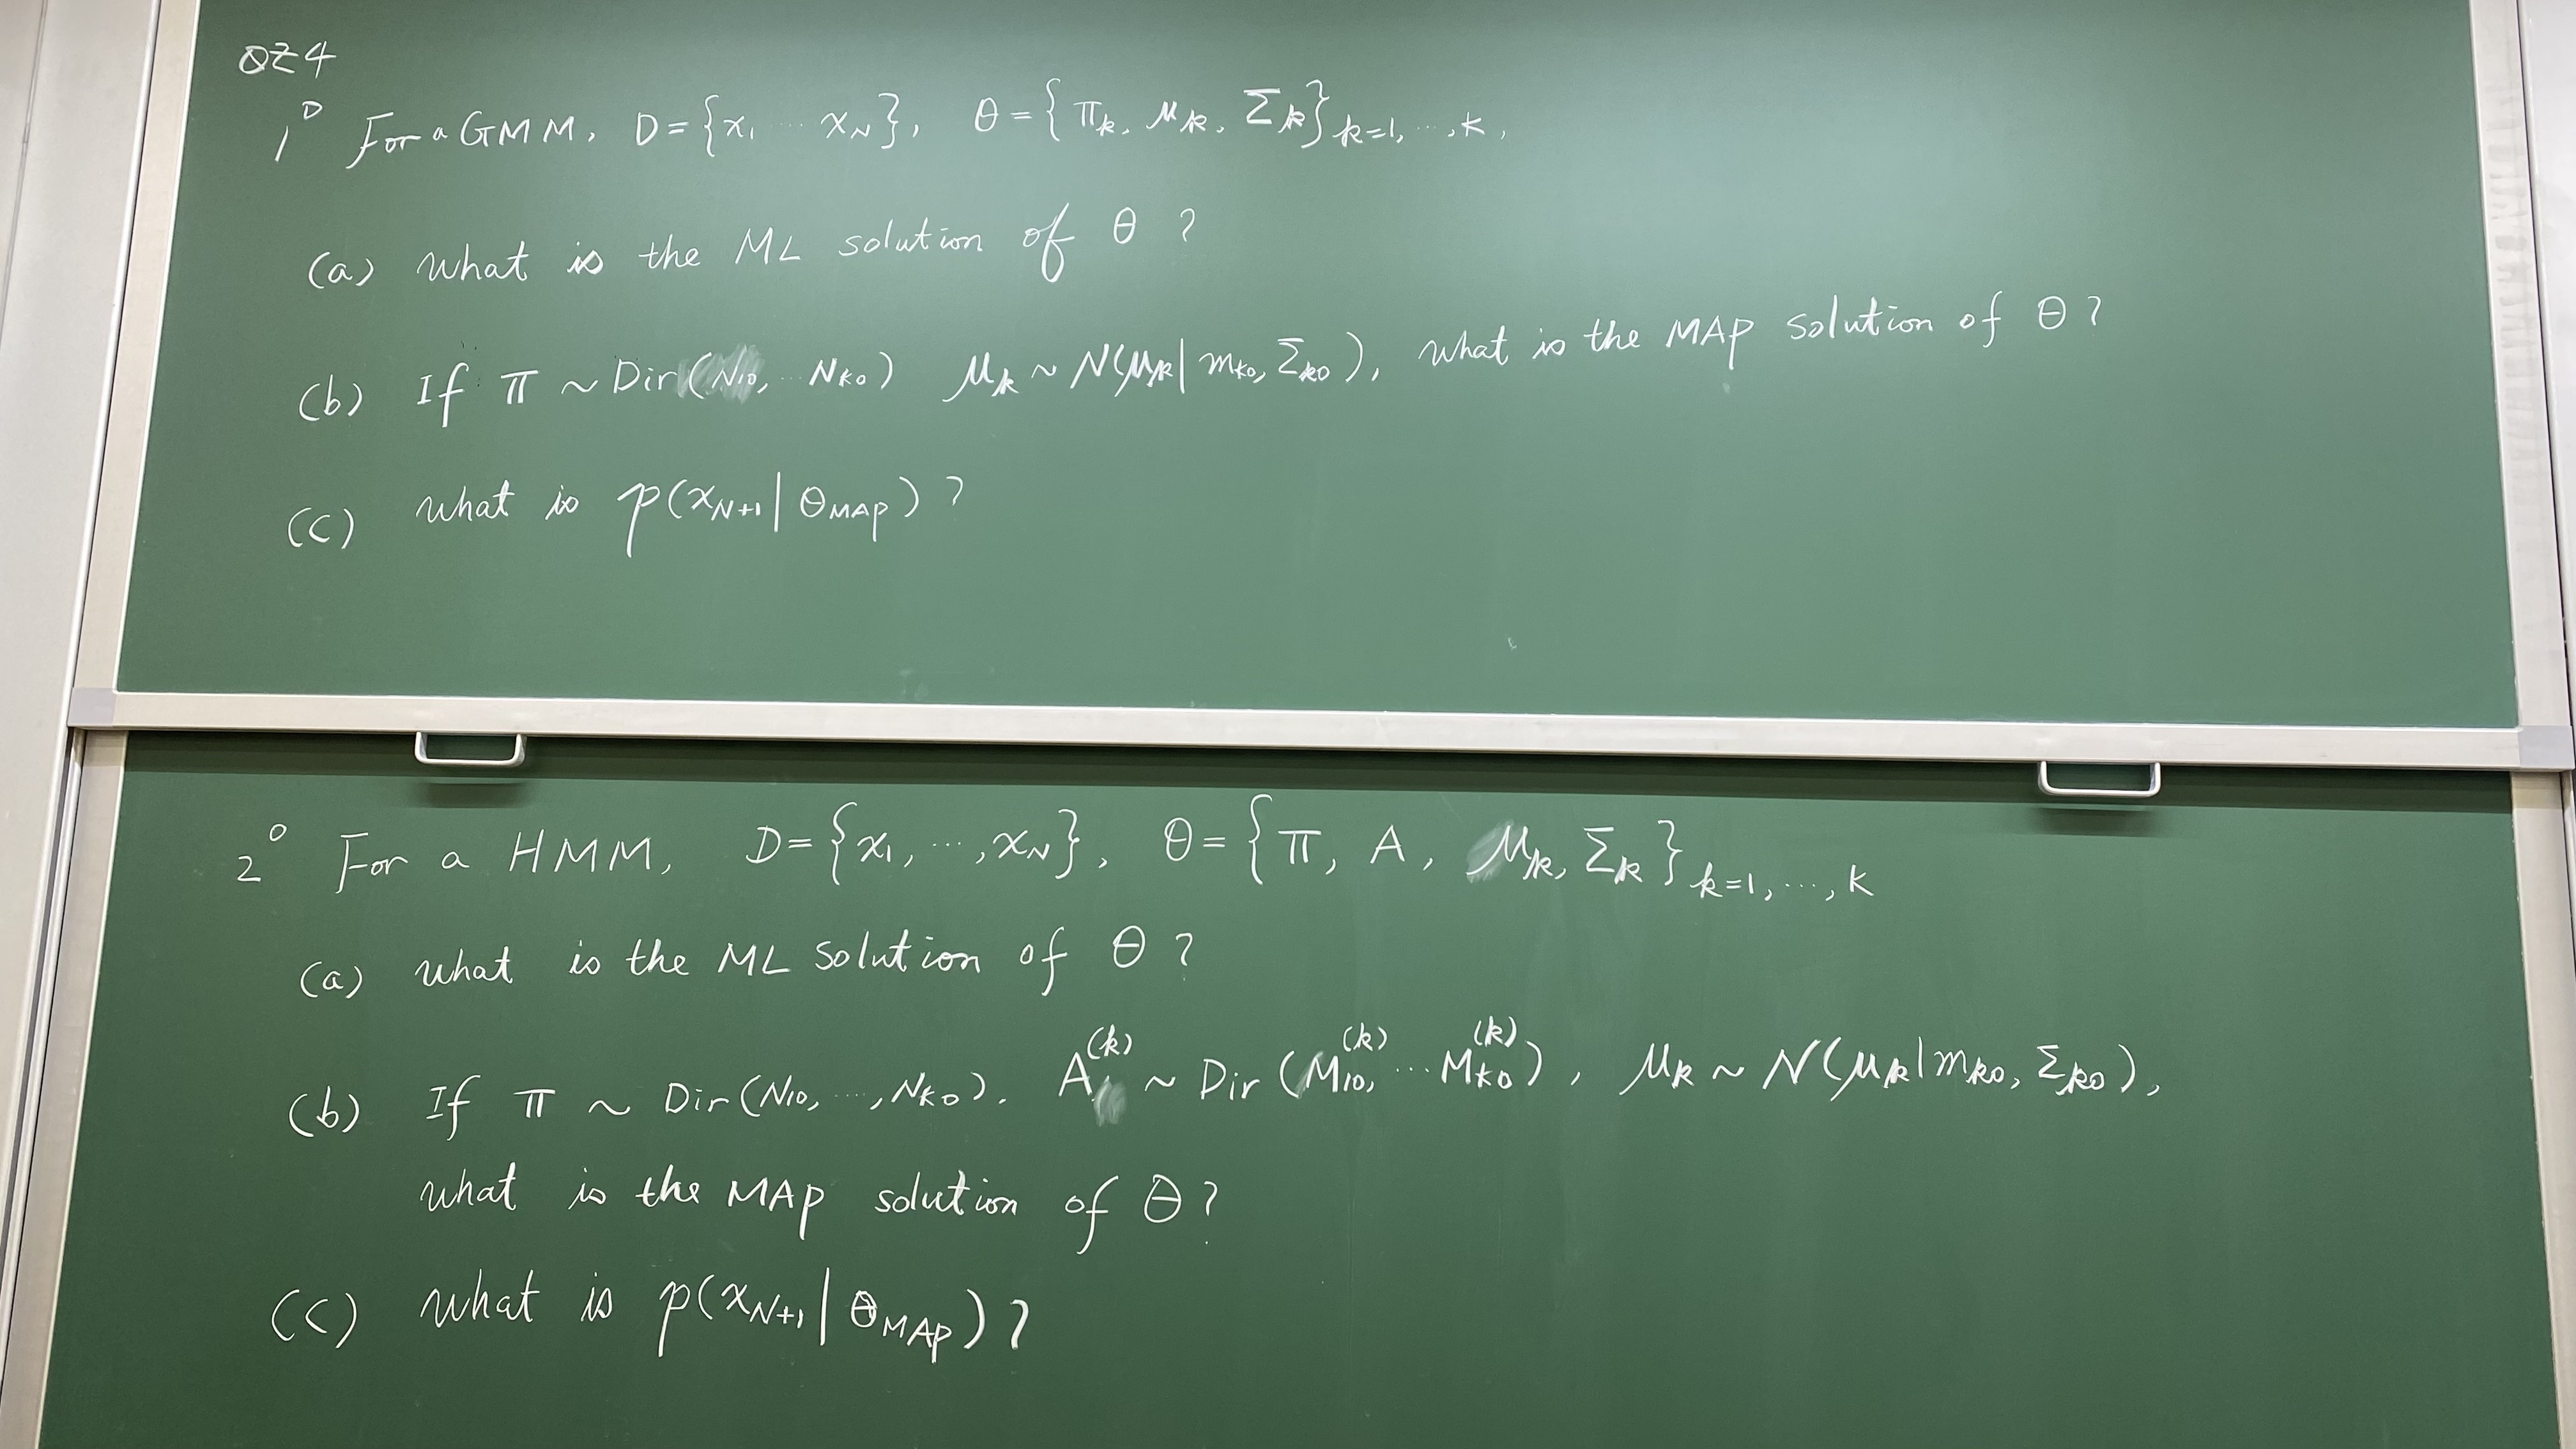 QZ4
1° For a GMM, D={x₁ ... x_N}, θ={π_k, μ_k, Σ_k}_k=1, ..., K,
(a) what is the ML solution of θ ?
(b) If π ~ Dir(N₁₀, ... N_K0) μ_k ~ N(μ_k | m_k0, Σ_k0), what is the MAP solution of θ ?
(c) what is p(x_N+1 | θ_MAP) ?
2° For a HMM, D={x₁, ..., x_N}, θ={π, A, μ_k, Σ_k}_k=1, ..., K
(a) what is the ML solution of θ ?
(b) If π ~ Dir(N₁₀, ..., N_K0). A^(k) ~ Dir (M₁₀^(k), ... M_K0^(k)), μ_k ~ N(μ_k | m_k0, Σ_k0),
what is the MAP solution of θ ?
(c) what is p(x_N+1 | θ_MAP) ?